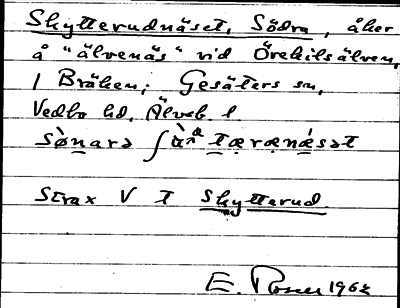 Skytterudnäset, Södra, åker
å "älvenäs" vid Örekilsälven,
i Bräken; Gesäters sn,
Vedbo hd, Älvsb. l.
Strax V t Skytterud.
E. Rosell 1962